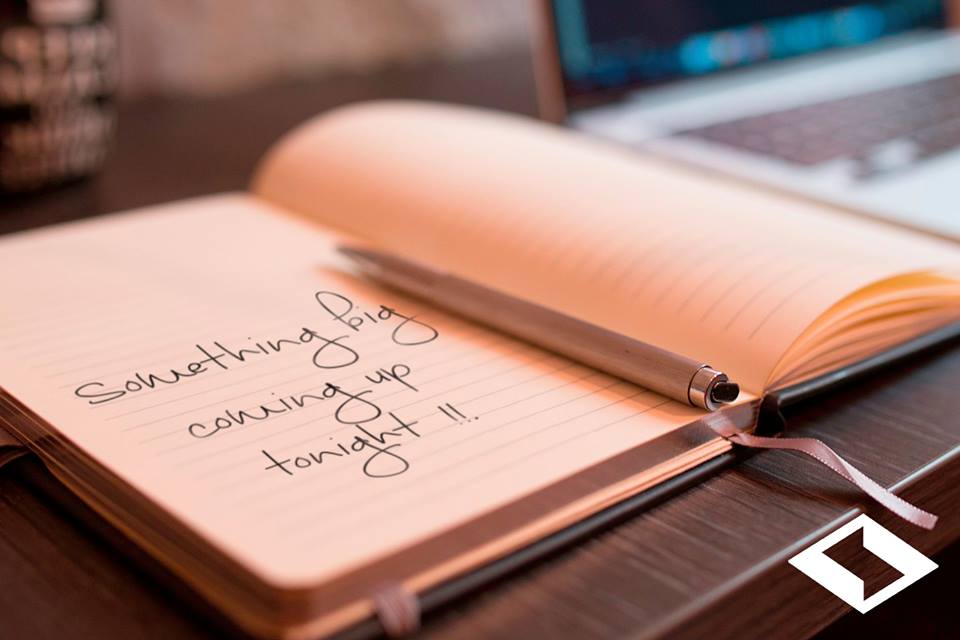 Something big
coming up
tonight !!